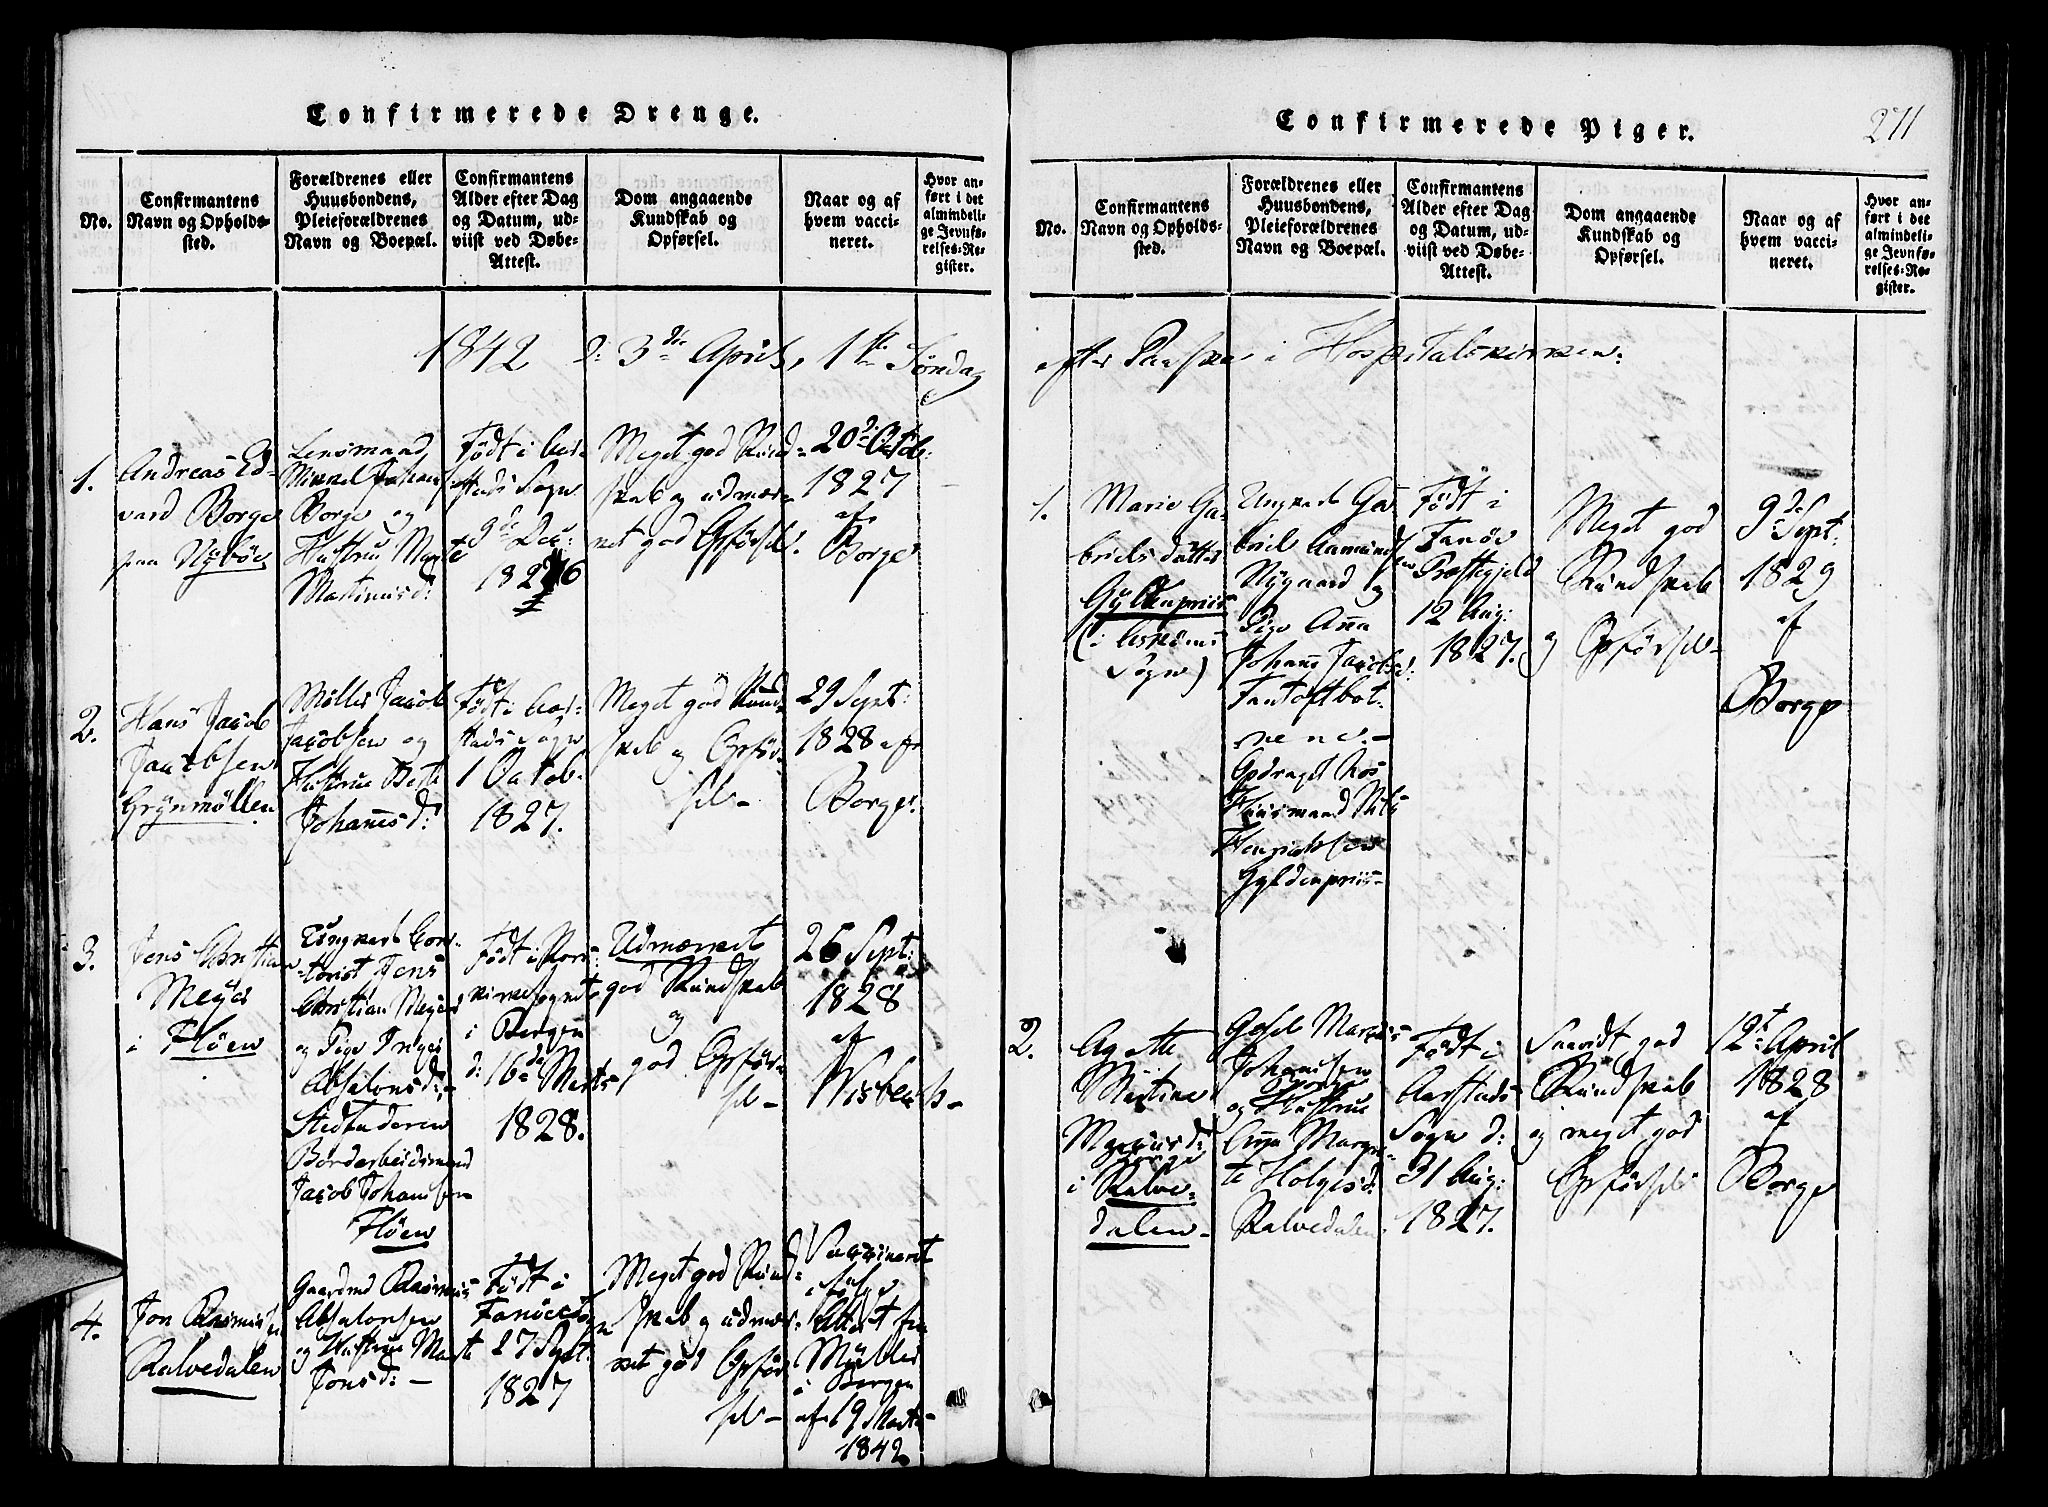 Confirmerede Drenge.
No.
Confirmantens
Navn og Opholds-
sted.
Forældrenes eller
Huusbondens,
Pleieforældrenes
Navn og Boepæl.
Confirmantens
Alder efter Dag
og Datum, ud-
viist ved Døbe-
Attest.
Dom angaaende
Kundskab og
Opførsel.
Naar og af
hvem vacci-
neret.
Hvor an-
ført i det
almindeli-
ge Jevnfø-
relses-Re-
gister.
1842 d: 3die April, 1ste Søndag
1.
Andreas Ed-
vard Borge
paa Nybøe
Lensmand
Mikkel Johans
Borge og
Hustrue Marte
Martinusd:
Født i Aar-
stads Sogn
9de Dec:
1826
Meget god Kund-
skab og udmær-
ket god Opførsel.
20de Octob:
1827
af
Borge
2.
Hans Jacob
Jacobsen
Grynmøllen
Møller Jacob
Jacobsen og
Hustrue Berte
Johannsd:
Født i Aar-
stads Sogn
1 Octob-
1827.
Meget god Kund-
skab og Opfør-
sel-
29 Sept:
1828 af
Borge.
3.
Jens Christian
Meyer
i Fløen
Ungkarl Con-
torist Jens
Christian Meyer
og Pige Inger
Absalonsd:,
Stedfaderen
Bordarbeidsmand
Jacob Johannsen
Fløen
Født i Kors-
kirkesognet
i Bergen
d: 16de Marts
1828.
Udmærket
god Kundskab
og
god Opfør-
sel-
26 Sept:
1828
af
Wisbech-
4.
Jon Rasmussen
Kalvedalen
Gaardmd Rasmus
Absalonsen
og Hustrue Marte
Jonsd: -
Født i
Fanøe
27 Sept:
1827
Meget god Kund-
skab og udmær-
ket god Opfør-
sel-
Vaccineret
ifølge
Attest fra
Müller
i Bergen
af 19 Marts
1842.
Confirmerede Piger.
271
No.
Confirmantens
Navn og Opholds-
sted.
Forældrenes eller
Huusbondens,
Pleieforældrenes
Navn og Boepæl.
Confirmantens
Alder efter Dag
og Datum, ud-
viist ved Døbe-
Attest.
Dom angaaende
Kundskab og
Opførsel.
Naar og af
hvem vacci-
neret.
Hvor an-
ført i det
almindeli-
ge Jevnfø-
relses-Re-
gister.
efter Paaske i Hospitalskirken:
1.
Marie Ga-
brielsdatter
Gyldenpriis
(i Askøens
Sogn)
Ungkarl Ga-
briel Aamundsen
Nygaard og
Pige Anna
Johanns Jacobsd:
Fantoftbot-
nene.-
Opdraget hos
Huusmand Nils
Henrichsen
Gyldenpriis-
Født i
Fanøe
Præstegjeld
12 Aug:
1827.
Meget god
Kundskab
og Opførsel-
9de Sept:
1829
af
Borge
2.
Agethe
Martine
Markusd:
Borge
i Kalve-
dalen-
Gdsel Markus
Johannsen
Borge
og Hustrue
Anna Margre-
te Holgersd:
Kalvedalen.
Født i
Aarstads
Sogn d:
31 Aug:
1827.
Saavidt god
Kundskab
og meget god
Opførsel
12te April
1828
af
Borge